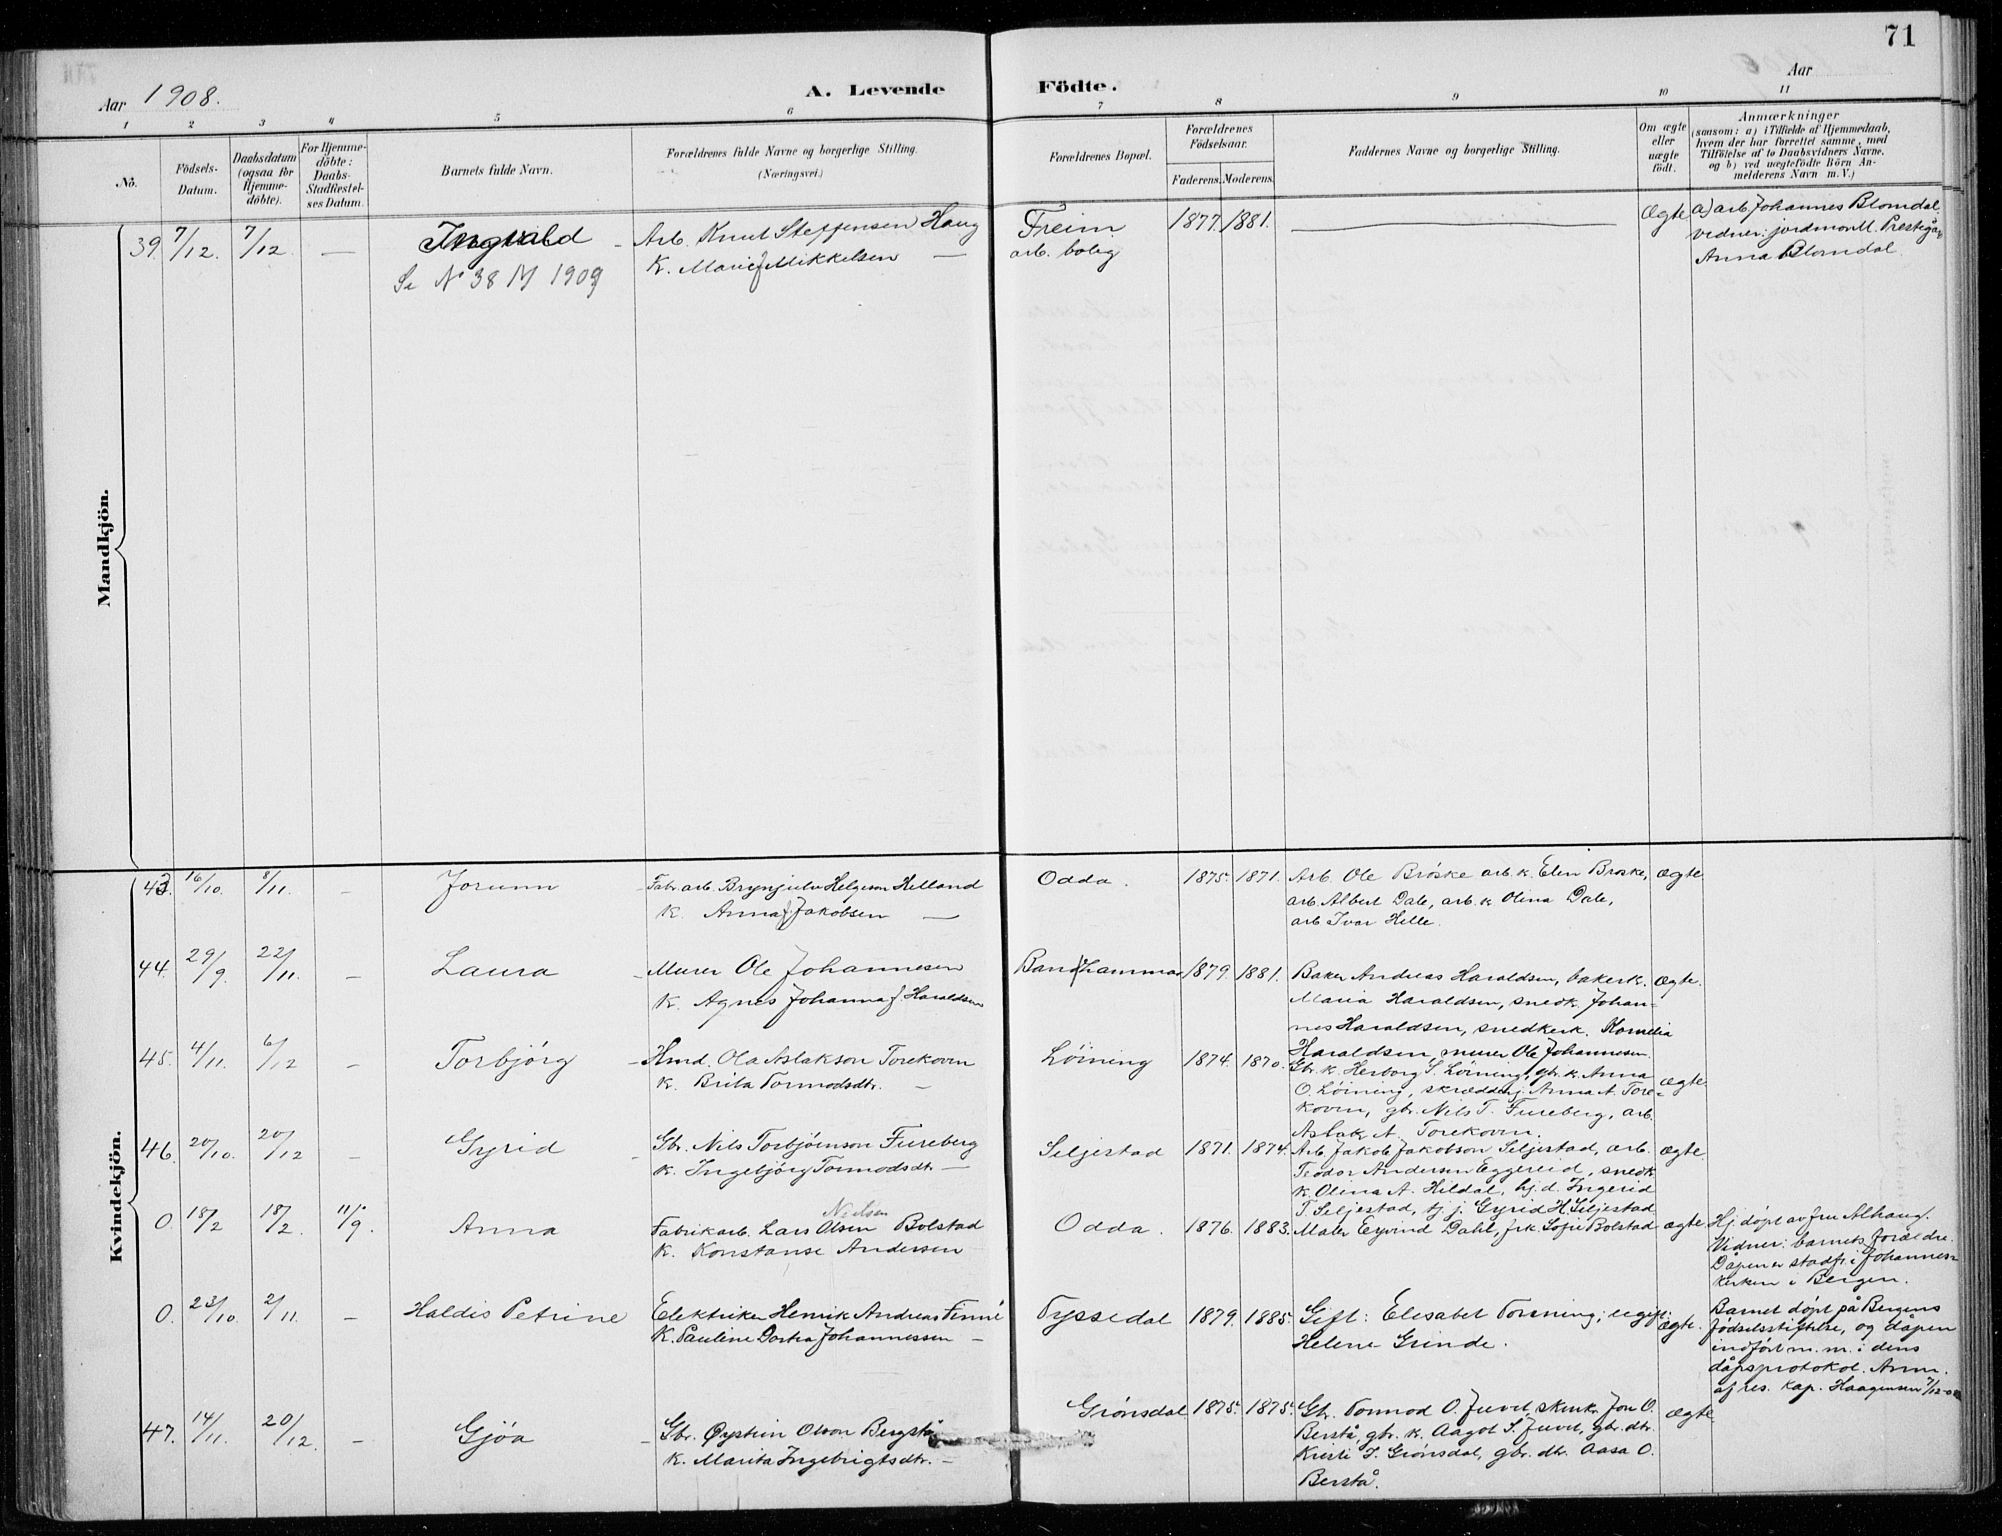 71
Aar 1908.
A. Levende Födte.
Aar
1 2 3 4 5 6 7 8 9 10 11
No.
Födsels-
Datum.
Daabsdatum
(ogsaa för
Hjemme-
döbte).
For Hjemme-
döbte:
Daabs-
Stadfæstel-
ses Datum.
Barnets fulde Navn.
Forældrenes fulde Navne og borgerlige Stilling.
(Næringsvei.)
Forældrenes Bopæl.
Forældrenes
Födselsaar.
Faderens. Moderens.
Faddernes Navne og borgerlige Stilling.
Om ægte
eller
uægte
födt.
Anmærkninger
(saasom: a) i Tilfælde af Hjemmedaab,
hvem der har forrettet samme, med
Tilföielse af to Daabsvidners Navne.
og b) ved uægtefödte Börn An-
melderens Navn m. V.)
Mandkjön.
39. 7/12. 7/12. — Ingvald
Se No 38 M 1909
Arb. Knut Steffensen Haug
K. Marie f Mikkelsen —
Freim
arb. bolig
1877. 1881. — Ægte
a) arb. Johannes Blomdal
vidner: jordmor M. Prestegår
Anna Blomdal.
Kvindekjön.
43. 16/10. 8/11. — Jorunn
Fabr. arb. Brynjulv Helgeson Helland
K. Anna f Jakobsen —
Odda. 1875. 1871.
Arb. Ole Bröske arb. k. Elen Bröske,
arb. Albert Dale, arb. k Olina Dale,
arb Ivar Helle.
Ægte
44. 29/9. 22/11. — Laura
Murer Ole Johannesen
K. Agnes Johanna f Haraldsen
Bandhammar 1879. 1881.
Baker Andreas Haraldsen, baker k.
Maria Haraldsen, snedk. Johan-
nes Haraldsen, snedkerk. Kornelia
Haraldsen, murer Ole Johannesen.
Ægte.
45. 4/11. 6/12 — Torbjörg
Hmd. Ola Aslakson Torekovn
K. Brita Tormodsdtr. —
Löining 1874. 1870.
Gbr. k. Herborg S. Löining, gbr. k. Anna
O. Löining, skrædderj. Anna A. Tore-
kovn, gbr. Nils T. Fureberg, arb.
Aslak A. Torekovn.
Ægte
46. 20/10. 20/12 — Gyrid
Gbr. Nils Torbjörnson Fureberg
K. Ingebjörg Tormodsdtr —
Seljestad 1871. 1874.
Arb. Jakob Jakobson Seljestad, arb.
Teodor Andersen Eggereid, snedk
k. Olina A. Hildal, hj. d. Ingerid
T Seljestad, tj. j. Gyrid H Seljestad
Ægte.
0. 18/2 18/2. 11/9. Anna
Nielsen
Fabrikarb. Lars Olsen Bolstad
K. Konstanse Andersen —
Odda. 1876. 1883.
Maler Eyvind Dahl, frk. Sofie Bolstad
Ægte
Hj. döpt av fru Alhaug.
Vidner: barnets forældre.
Dåpen er stadf. i Johannes-
kirken i Bergen.
0. 23/10. 2/11. — Haldis Petrine
Elektriker Henrik Andreas Finne
K. Pauline Dortea Johannessen —
Tyssedal 1879. 1885.
Gift: Elesabet Torsning; ugift:
Helene Grinde.
Ægte.
Barnet döpt på Bergens
födselsstiftelse, og dåpen
indfört m. m. i dens
dåpsprotokol. Anm.
af res. kap. Haagensen 7/12-08
47. 14/11. 20/12. — Gjöa
Gbr. Öystein Olson Bergstå
K. Marita Ingebrigtsdtr. —
Grönsdal 1875. 1875.
Gbr. Tormod O. Juvet, skinke Jon O.
Berstå, gbr. k. Aagot S. Juvet, gbr. dtr.
Kristi J. Grönsdal, gbr. dtr. Aasa O.
Berstå.
Ægte